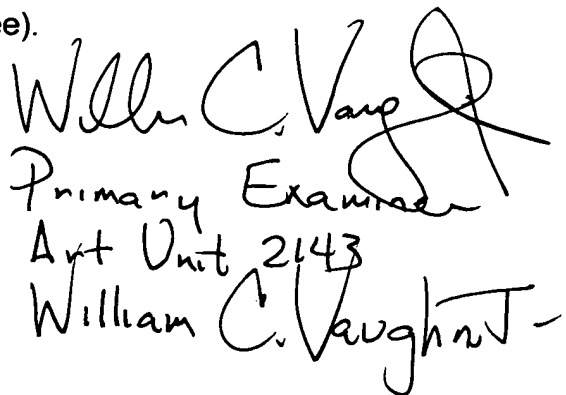 ee).
William C. Vaughn Jr
Primary Examiner
Art Unit 2143
William C. Vaughn Jr